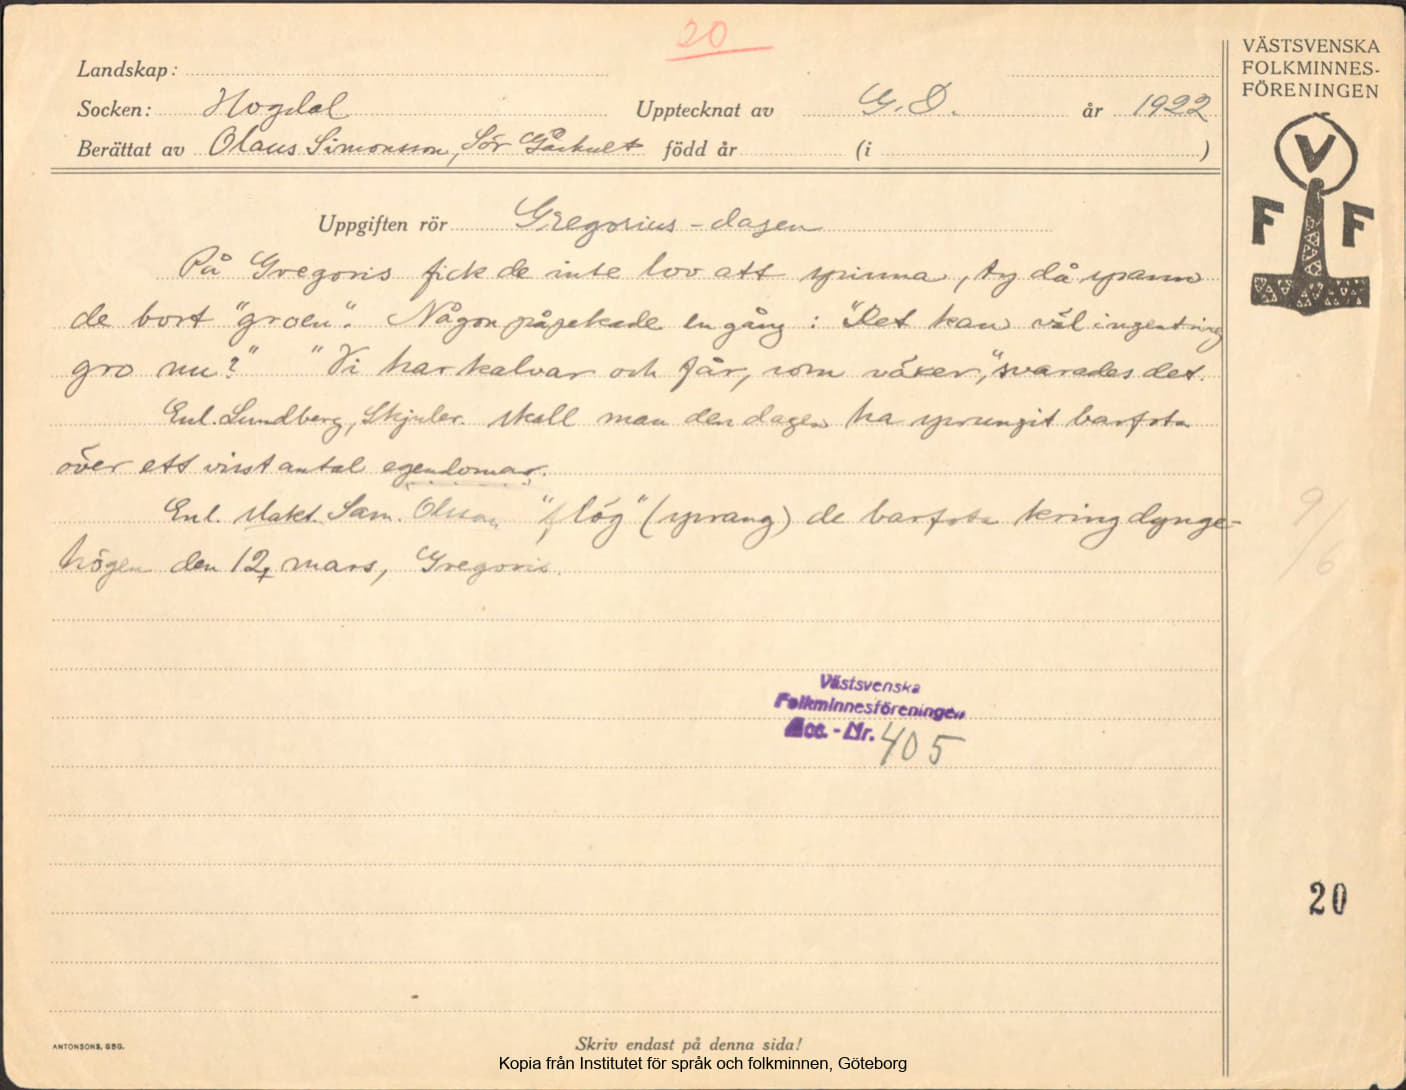 20
Landskap:
VÄSTSVENSKA
FOLKMINNES-
FÖRENINGEN
Socken: Hogdal Upptecknat av G. D. år 1922
Berättat av Olaus Simonsson, Sör född år (i )
V
F F
Uppgiften rör Gregorius-dagen
På Gregoris fick de inte lov att spinna, ty då spann
de bort "groen". Någon påpekade en gång: "Det kan väl ingenting
gro nu?" "Vi har kalvar och får, som växer," svarades det.
Enl. Lundberg, skall man den dagen ha sprungit barfota
över ett visst antal egendomar.
Enl. Sam. Olsson "flög" (sprang) de barfota kring dynge-
högen den 12 mars, Gregoris.
9/6
Västsvenska
Folkminnesföreningen
Acc.-Nr. 405
20
ANTONSONS, GBG.
Skriv endast på denna sida!
Kopia från Institutet för språk och folkminnen, Göteborg